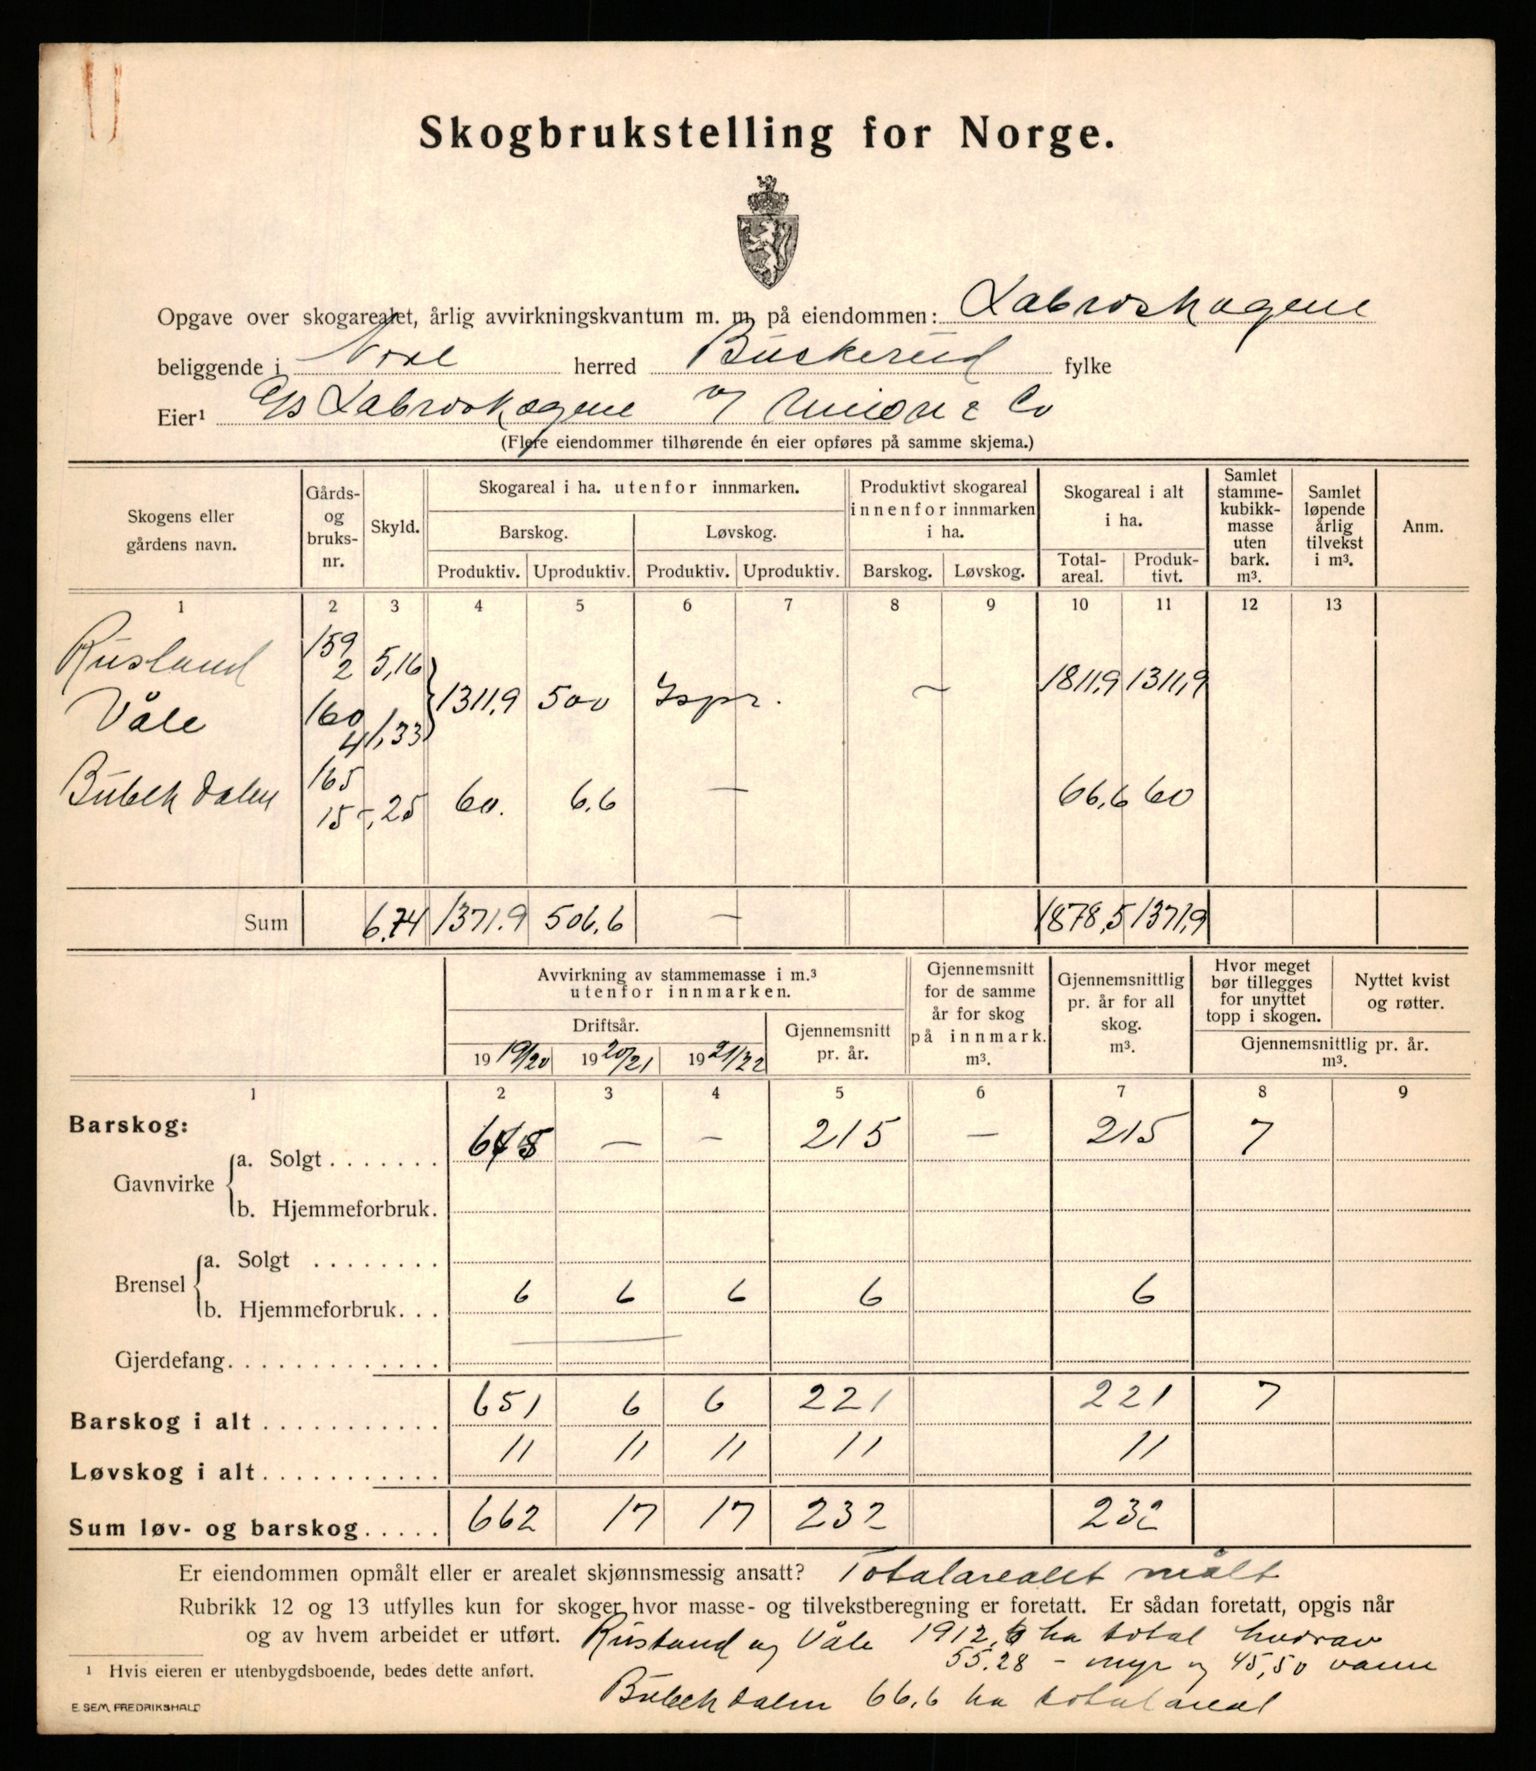 Skogbrukstelling for Norge.
Opgave over skogarealet, årlig avvirkningskvantum m. m. på eiendommen: Labroskogene
beliggende i herred Buskerud fylke
Eier¹ Labroskogene v/ Union & Co
(Flere eiendommer tilhørende én eier opføres på samme skjema.)
Skogens eller gårdens navn. Gårds- og bruks- nr. Skyld. Skogareal i ha. utenfor innmarken. Produktivt skogareal innenfor innmarken i ha. Skogareal i alt i ha. Samlet stamme- kubikk- masse uten bark. m³. Samlet løpende årlig tilvekst i m³. Anm.
Barskog. Løvskog.
Produktiv. Uproduktiv. Produktiv. Uproduktiv. Barskog. Løvskog. Total- areal. Produk- tivt.
1 2 3 4 5 6 7 8 9 10 11 12 13
Rusland 159 2 5,16
1311,9 500 Ispr. ~ 1811,9 1311,9
Våle 160 4 1,33
Bübekdalen 165 15 -,25 60. 6.6 — 66,6 60
Sum 6.74 1371.9 506,6 — 1878,5 1371,9
Avvirkning av stammemasse i m.³ utenfor innmarken. Gjennemsnitt for de samme år for skog på innmark. m³. Gjennemsnittlig pr. år for all skog. m³. Hvor meget bør tillegges for unyttet topp i skogen. Nyttet kvist og røtter.
Driftsår. Gjennemsnitt pr. år. Gjennemsnittlig pr. år. m³.
19 19/20 19 20/21 19 21/22
1 2 3 4 5 6 7 8 9
Barskog:
Gavnvirke a. Solgt . . . . . . . 645 — — 215 — 215 7
b. Hjemmeforbruk.
Brensel a. Solgt . . . . . . .
b. Hjemmeforbruk. . . 6 6 6 6 6
Gjerdefang. . . . . . . . . . . . .
Barskog i alt . . . . . . . . . . . 651 6 6 221 221 7
Løvskog i alt. . . . . . . . . . . 11 11 11 11 11
Sum løv- og barskog. . . . . 662 17 17 232 232
Er eiendommen opmålt eller er arealet skjønnsmessig ansatt? Totalarealet målt
Rubrikk 12 og 13 utfylles kun for skoger hvor masse- og tilvekstberegning er foretatt. Er sådan foretatt, opgis når
og av hvem arbeidet er utført. Rustand og Våle 1912,6 ha total hvorav
55.28 - myr og 45,50 vann
¹ Hvis eieren er utenbygdsboende, bedes dette anført.
Bübekdalen 66,6 ha totalareal
E. SEM, FREDRIKSHALD